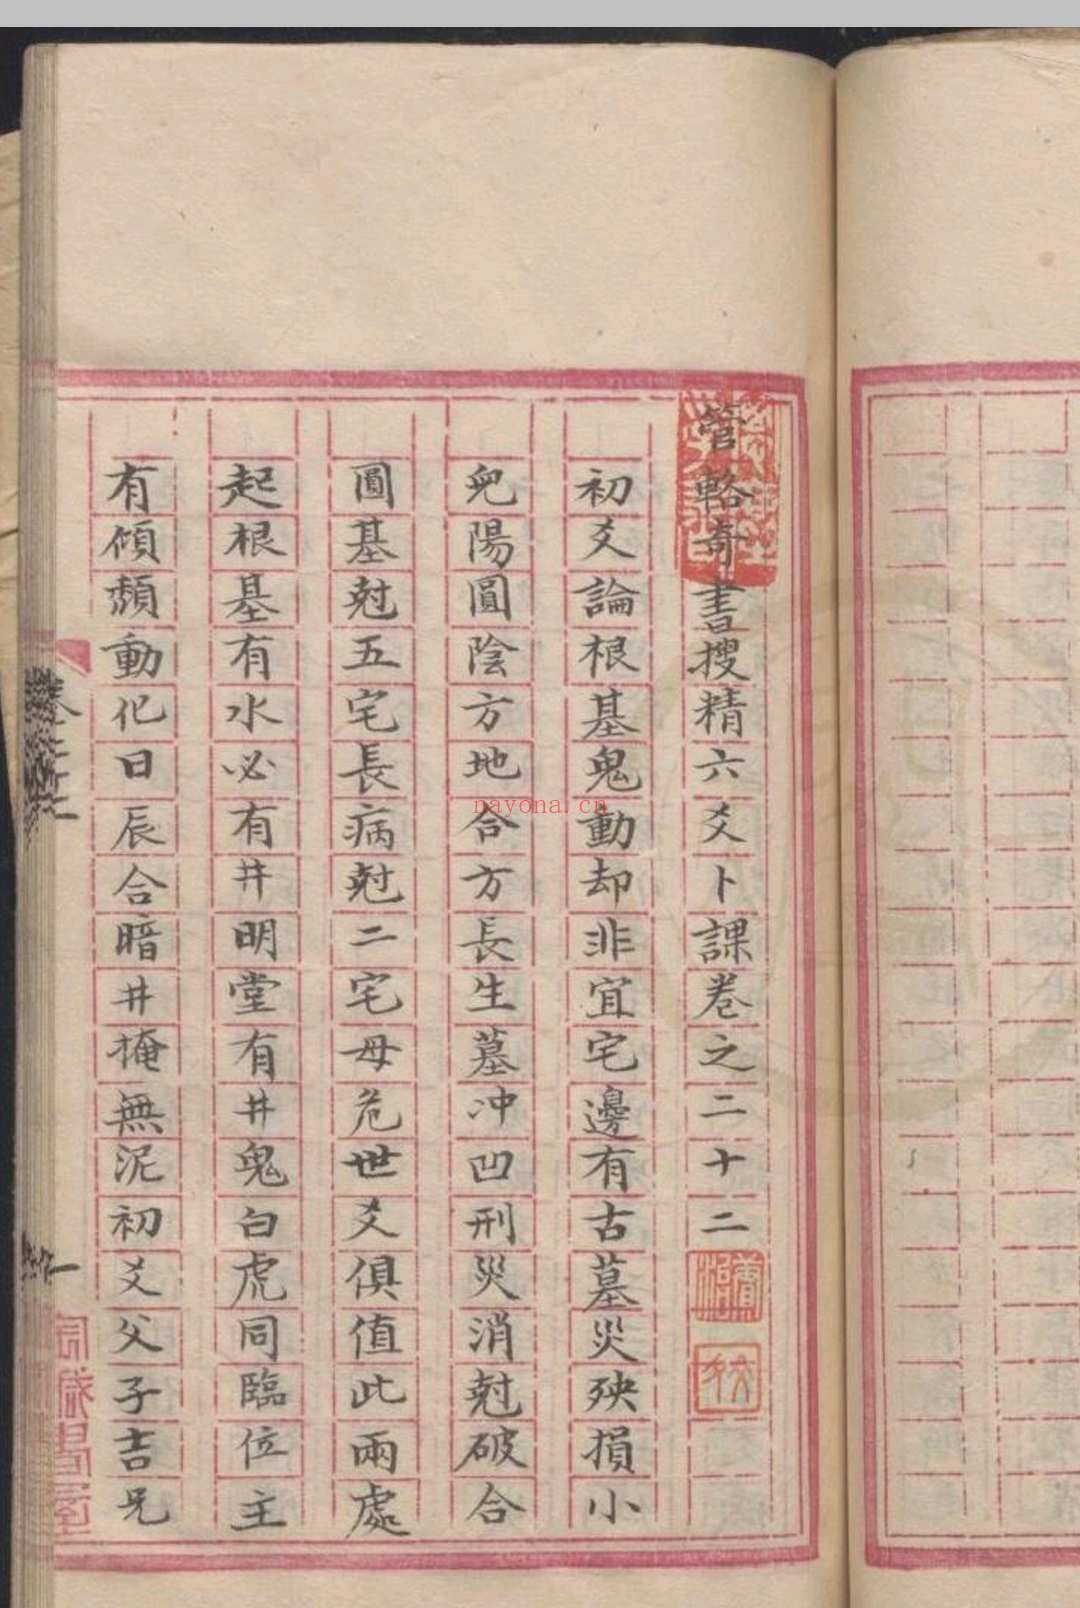 管輅奇書搜精六爻卜課卷之二十二
初爻論根基鬼動却非宜宅邊有古墓災殃損小
皃陽圓陰方地合方長生墓冲凹刑災消尅破合
圓基尅五宅長病尅二宅母危世爻俱值此兩處
起根基有水必有井明堂有井鬼白虎同臨位主
有傾頹動化日辰合暗井掩無泥初爻父子吉兄
nayona.cn